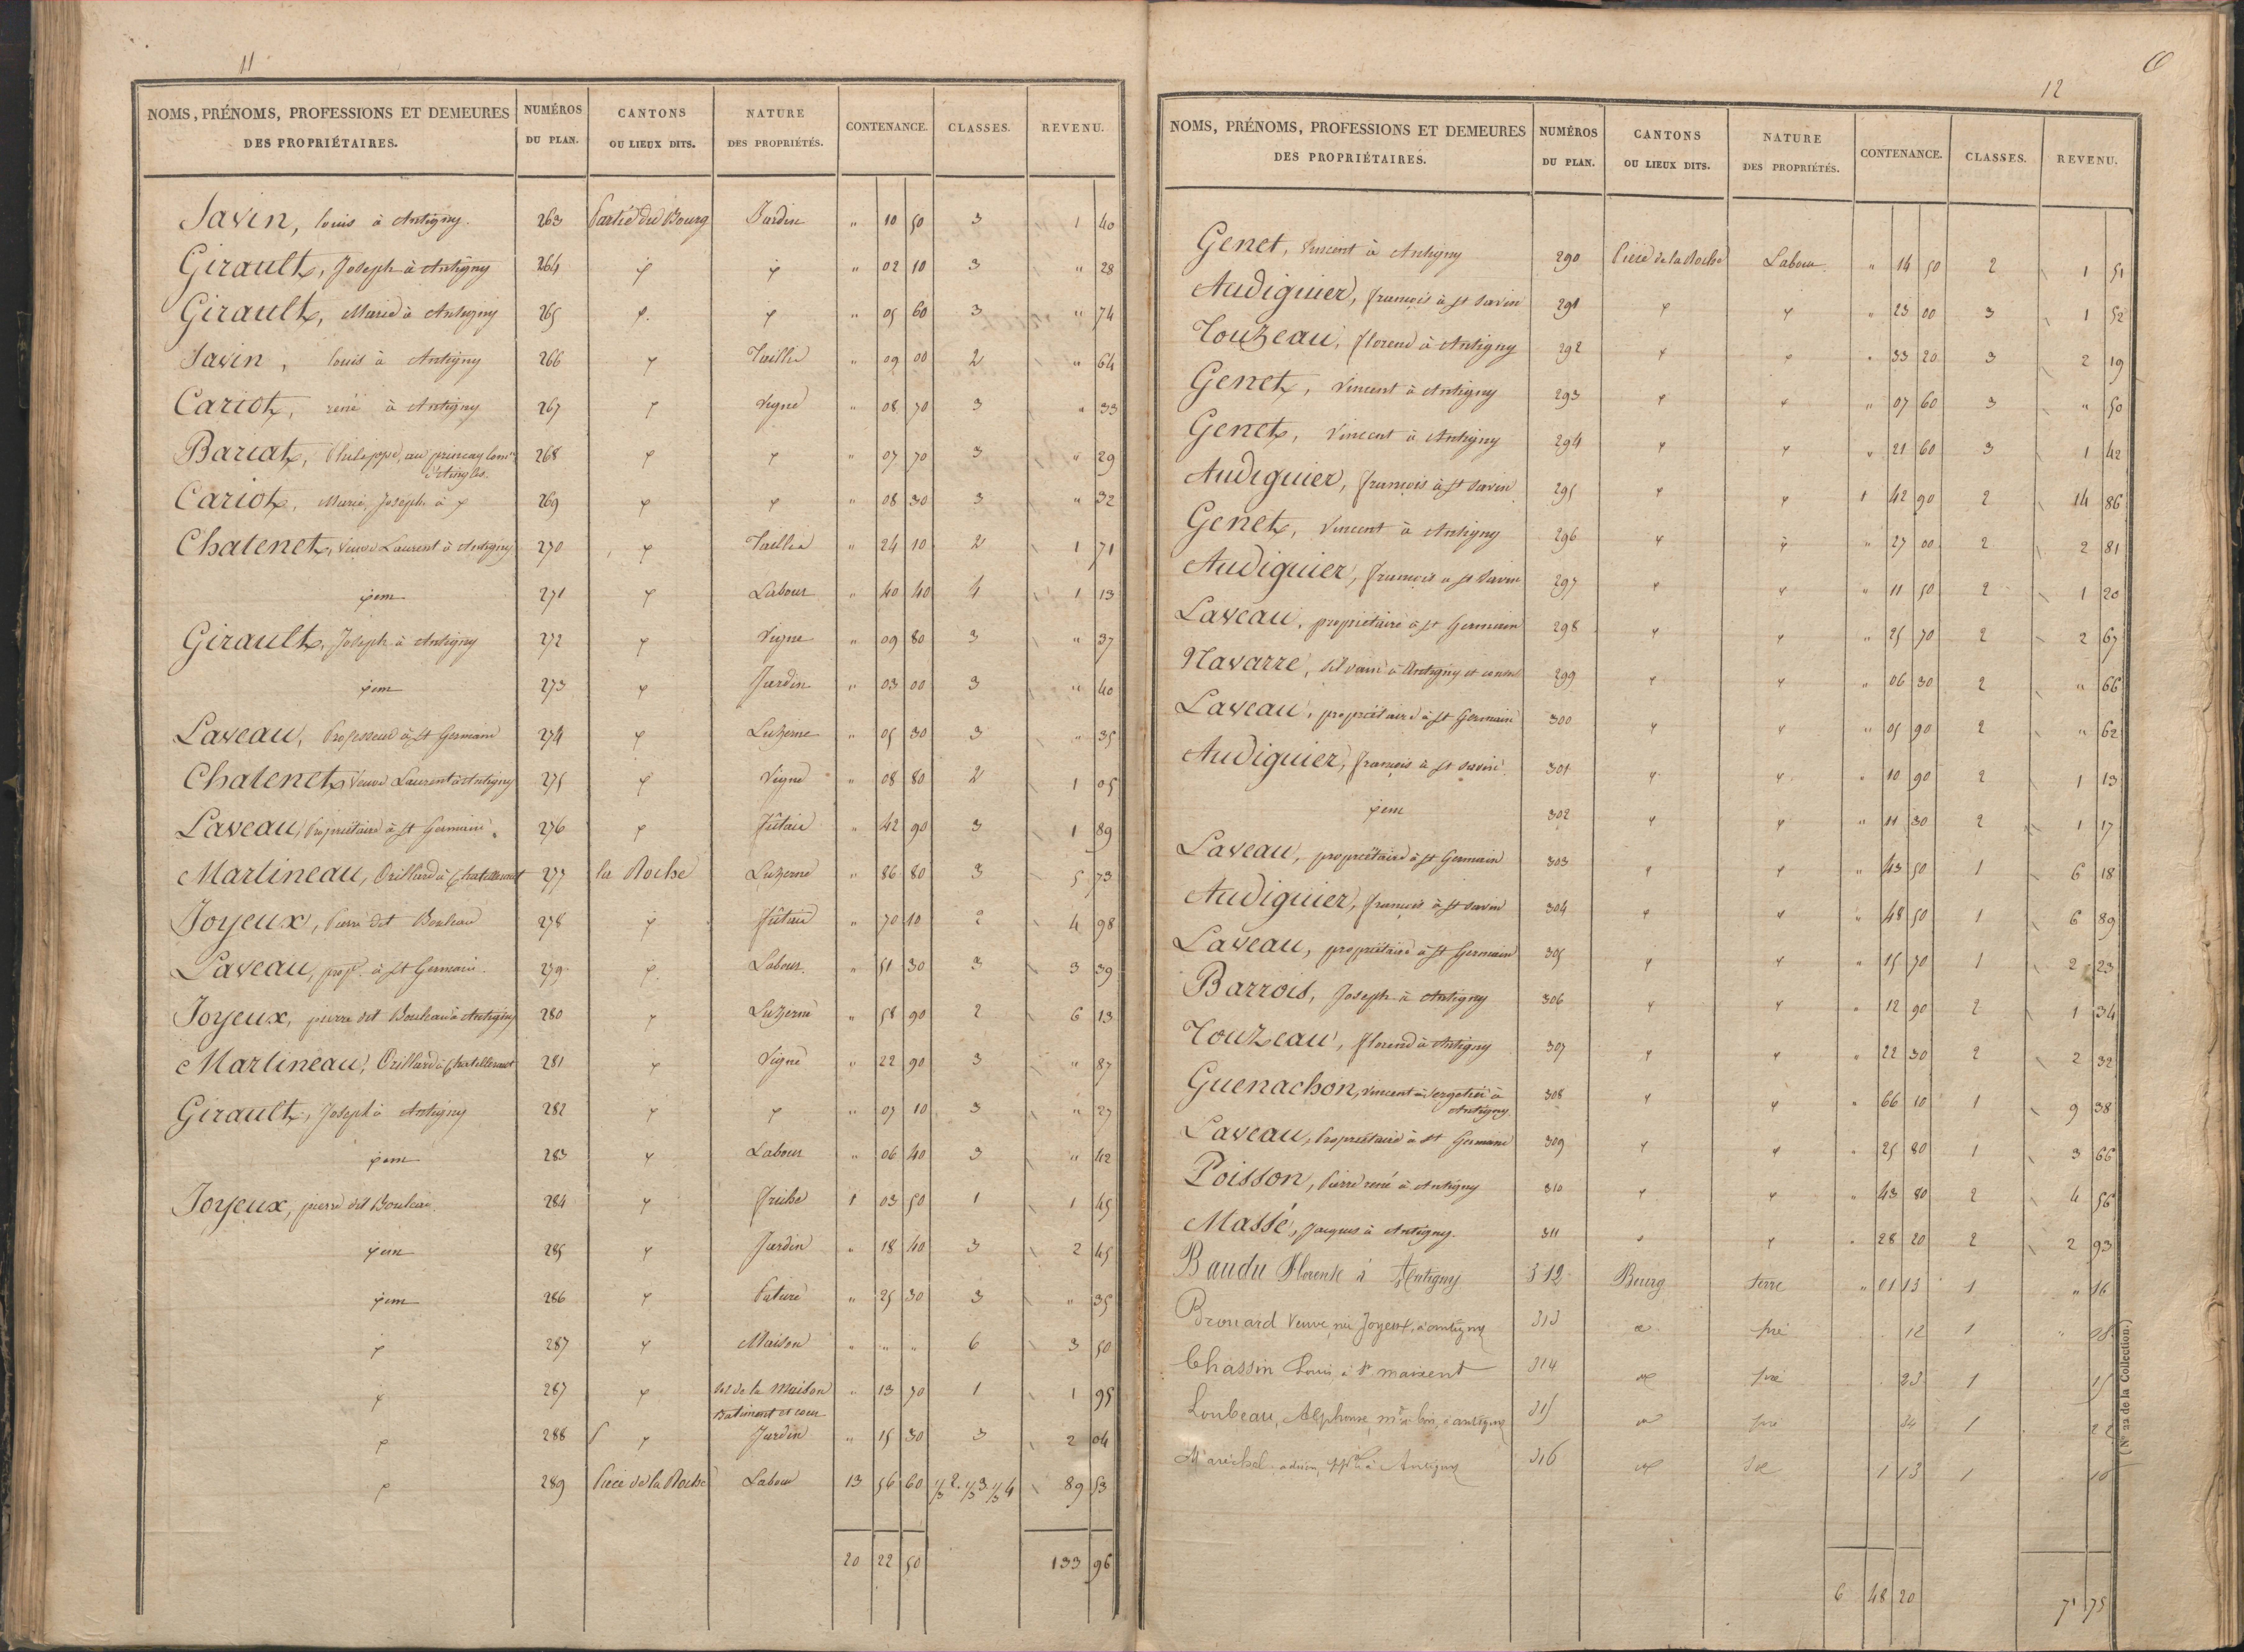 11
NOMS, PRÉNOMS, PROFESSIONS ET DEMEURES DES PROPRIÉTAIRES. NUMÉROS DU PLAN. CANTONS OU LIEUX DITS. NATURE DES PROPRIÉTÉS. CONTENANCE. CLASSES. REVENU.
Savin, louis à Antigny. 263 Partie du Bourg Jardin " 10 50 3 1 40
Girault, Joseph à Antigny 264 φ φ " 02 10 3 " 28
Girault, Marie à Antigny 265 φ. φ " 05 60 3 " 74
Savin, louis à Antigny 266 φ Taillis " 09 00 2 " 64
Cariot, réné à Antigny 267 φ Vigne " 08 70 3 " 33
Bariat, Philippe, au princay Com.ne
d'Angles. 268 φ φ " 07 70 3 " 29
Cariot, Marie, Joseph à φ 269 φ φ " 08 30 3 " 32
Chatenet, Veuve Laurent à Antigny 270 φ Taillis " 24 10 2 1 71
φem 271 φ Labour " 40 40 4 1 13
Girault, Joseph à Antigny 272 φ Vigne " 09 80 3 " 37
φem 273 φ Jardin " 03 00 3 " 40
Laveau, Professeur à St Germain 274 φ Luzerne " 05 30 3 " 35
Chatenet Veuve Laurent à Antigny 275 φ Vigne " 08 80 2 1 05
Laveau, Propriétaire à St Germain. 276 φ fûtaie " 42 90 3 1 89
Martineau, Orillard à Chatellerault 277 la Roche Luzerne " 86 80 3 5 73
Joyeux, Pierre dit Bouleau 278 φ fûtaie " 70 10 2 4 98
Laveau, prop.re à St Germain. 279 φ Labour. " 51 30 3 3 39
Joyeux, pierre dit Bouleau à Antigny 280 φ Luzerne " 58 90 2 6 13
Martineau, Orillard à Chatellerault 281 φ Vigne " 22 90 3 " 87
Girault, Joseph à Antigny 282 φ φ " 07 10 3 " 27
φem 283 φ Labour " 06 40 3 " 42
Joyeux, pierre dit Bouleau. 284 φ friche 1 03 50 1 1 45
φem 285 φ Jardin " 18 40 3 2 45
φem 286 φ Pature " 25 30 3 " 35
φ 287 φ Maison " " " 6 3 50
φ 287 φ Sol de la Maison " 13 70 1 1 95
Batiment et cour
φ 288 φ Jardin " 15 30 3 2 04
φ 289 Pièce de la Roche Labour 13 56 60 1/3 2. 1/3 3. 1/3 4 89 53
20 22 50 133 96
6
12
NOMS, PRÉNOMS, PROFESSIONS ET DEMEURES DES PROPRIÉTAIRES. NUMÉROS DU PLAN. CANTONS OU LIEUX DITS. NATURE DES PROPRIÉTÉS. CONTENANCE. CLASSES. REVENU.
Genet, Vincent à Antigny 290 Pièce de la Roche Labour " 14 50 2 1 51
Audiguier, françois à St Savin 291 φ φ " 23 00 3 1 52
Touzeau, florend à Antigny 292 φ φ " 33 20 3 2 19
Genet, Vincent à Antigny 293 φ φ " 07 60 3 " 50
Genet, Vincent à Antigny 294 φ φ " 21 60 3 1 42
Audiguier, françois à St Savin 295 φ φ 1 42 90 2 14 86
Genet, Vincent à Antigny 296 φ φ " 27 00 2 2 81
Audiguier, françois à St Savin 297 φ φ " 11 50 2 1 20
Laveau, propriétaire à St Germain 298 φ φ " 25 70 2 2 67
Navarre, Silvain à Antigny 299 φ φ " 06 30 2 " 66
Laveau, propriétaire à St Germain 300 φ φ " 05 90 2 " 62
Audiguier, françois à St Savin. 301 φ φ " 10 90 2 1 13
φem 302 φ φ " 11 30 2 1 17
Laveau, propriétaire à St Germain 303 φ φ " 43 50 1 6 18
Audiguier, françois à St Savin 304 φ φ " 48 50 1 6 89
Laveau, propriétaire à St Germain 305 φ φ " 15 70 1 2 23
Barrois, Joseph à Antigny 306 φ φ " 12 90 2 1 34
Touzeau, florend à Antigny 307 φ φ " 22 30 2 2 32
Guenachon, Vincent à
Antigny 308 φ φ " 66 10 1 9 38
Laveau, Propriétaire à St Germain 309 φ φ " 25 80 1 3 66
Poisson, Pierre réné à Antigny 310 φ φ " 43 80 2 4 56
Massé, Jacques à Antigny. 311 φ φ " 28 20 2 2 93
Baudu Florent à Antigny 312 Bourg terre " 01 13 1 " 16
Brouard Veuve, née Joyeux, à antigny 313 pré 12 1 " 08
Chassin Louis à St maixent 314 pré 23 1 15
Loubeau, Alphonse, md de bois, à antigny 315 pré 34 1 22
Maréchel adrien, à Antigny 316 Sol 1 13 1 10
6 48 20 71 75
(N° 22 de la Collection.)